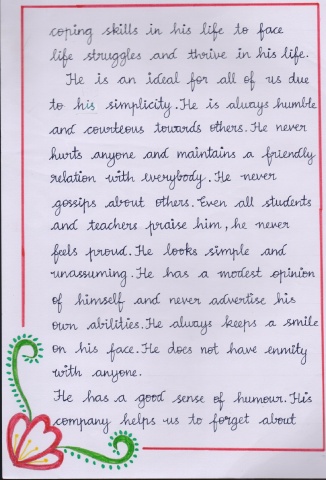 coping skills in his life to face
life struggles and thrive in his life.
He is an ideal for all of us due
to his simplicity. He is always humble
and courteous towards others. He never
hurts anyone and maintains a friendly
relation with everybody. He never
gossips about others. Even all students
and teachers praise him, he never
feels proud. He looks simple and
unassuming. He has a modest opinion
of himself and never advertise his
own abilities. He always keeps a smile
on his face. He does not have enmity
with anyone.
He has a good sense of humour. His
company helps us to forget about